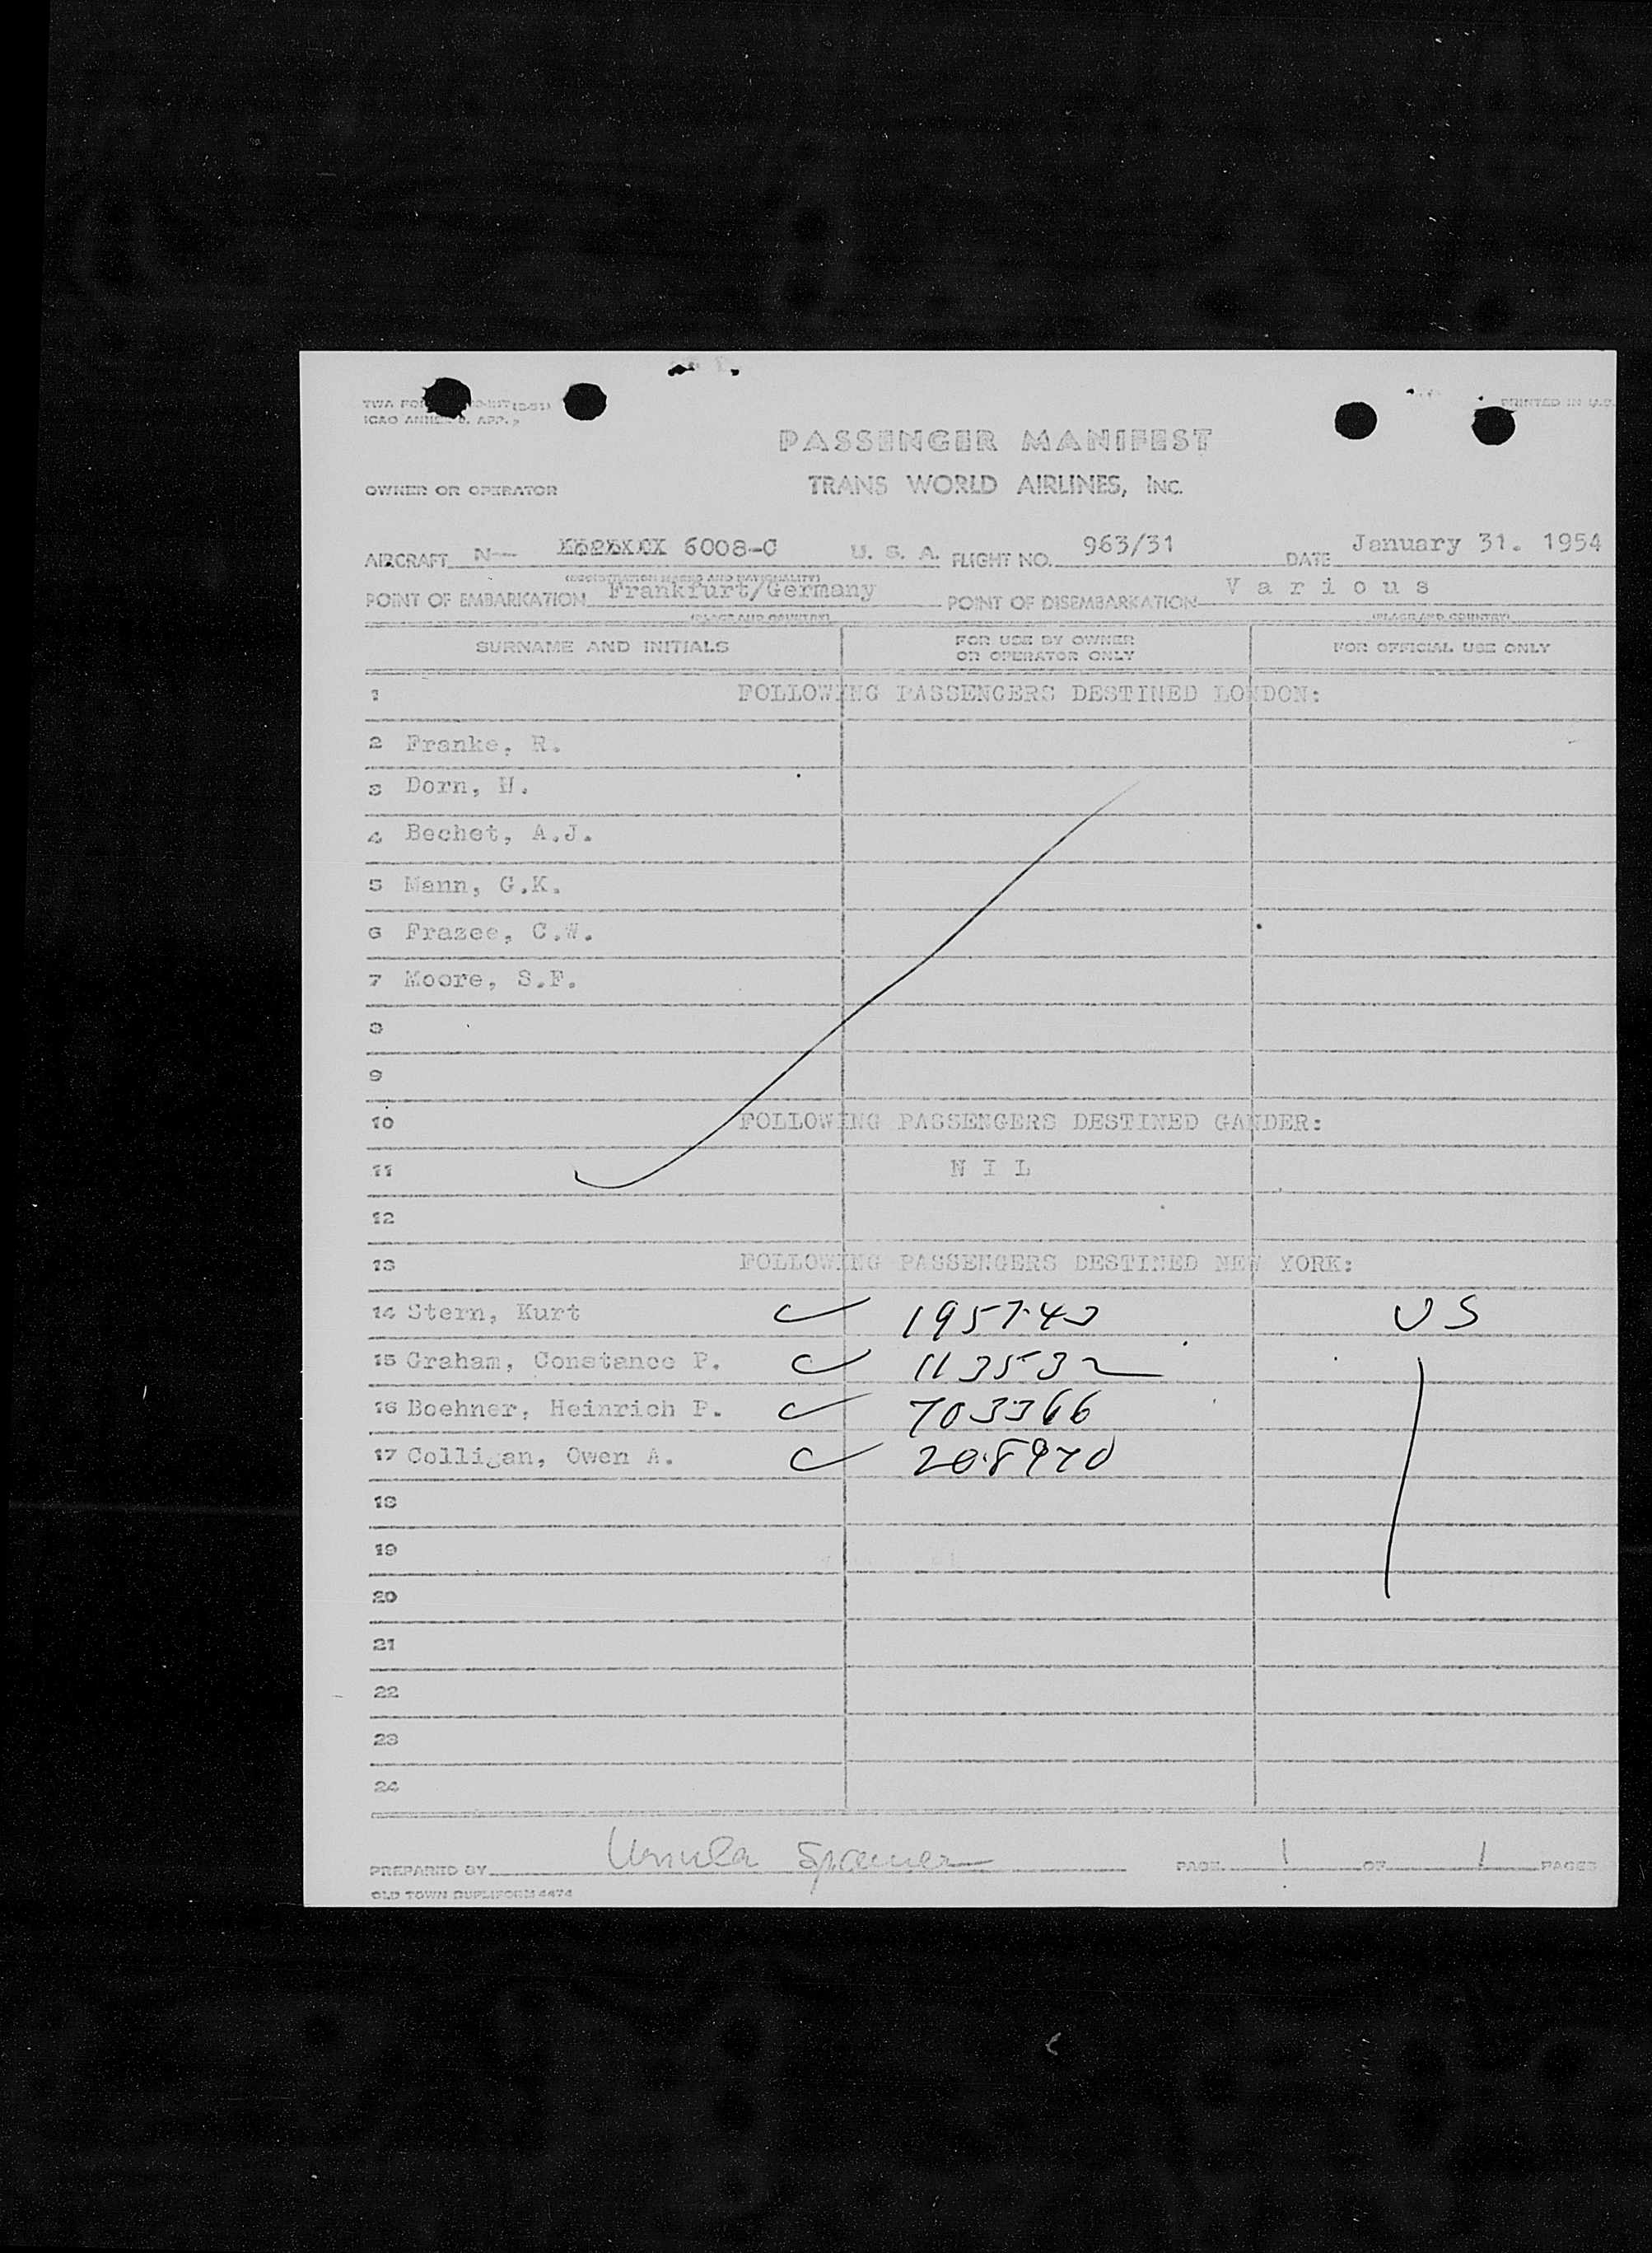 PRINTED IN U.S.
ICAO ANNEX 9, APP.
PASSENGER MANIFEST
OWNER OR OPERATOR TRANS WORLD AIRLINES, INC.
AIRCRAFT N— 6008-C U. S. A. FLIGHT NO. 963/31 DATE January 31. 1954
(REGISTRATION MARKS AND NATIONALITY)
POINT OF EMBARKATION Frankfurt/Germany POINT OF DISEMBARKATION Various
(PLACE AND COUNTRY) (PLACE AND COUNTRY)
SURNAME AND INITIALS FOR USE BY OWNER OR OPERATOR ONLY FOR OFFICIAL USE ONLY
1 FOLLOWING PASSENGERS DESTINED LONDON:
2 Franke, R.
3 Dorn, H.
4 Bechet, A.J.
5 Mann, G.K.
6 Frazee, C.W.
7 Moore, S.F.
8
9
10 FOLLOWING PASSENGERS DESTINED GANDER:
11 N I L
12
13 FOLLOWING PASSENGERS DESTINED NEW YORK:
14 Stern, Kurt 195743 US
15 Graham, Constance P. 113532
16 Boehner, Heinrich P. 703366
17 Colligan, Owen A. 208970
18
19
20
21
22
23
24
PREPARED BY Ursula PAGE 1 OF 1 PAGES
OLD TOWN DUPLIFORM 4474